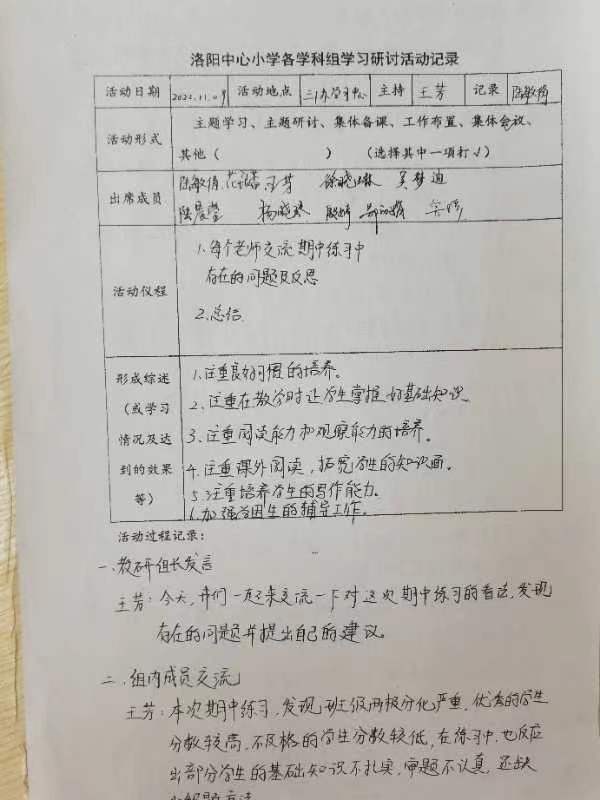 洛阳中心小学各学科组学习研讨活动记录
活动日期 2022.11.09 活动地点 主持 王芳 记录 陈敏倩
活动形式 主题学习、主题研讨、集体备课、工作布置、集体会议、
其他（ ） （选择其中一项打√）
出席成员 陈敏倩 王芳 徐晓琳 吴梦迪
陆晨莹 杨晓琴
活动仪程
1.每个老师交流期中练习中
存在的问题及反思
2.总结.
形成综述
（或学习
情况及达
到的效果
等）
1.注重良好习惯的培养。
2.注重在教学时让学生掌握好基础知识.
3.注重阅读能力和观察能力的培养。
4.注重课外阅读，拓宽学生的知识面。
5.注重培养学生的写作能力.
6.加强学困生的辅导工作。
活动过程记录：
一.教研组长发言
王芳：今天，我们一起来交流一下对这次期中练习的看法,发现
存在的问题并提出自己的建议.
二.组内成员交流
王芳：本次期中练习,发现班级两极分化严重,优秀的学生
分数较高,不及格的学生分数较低,在练习中,也反应
出部分学生的基础知识不扎实,审题不认真,还缺